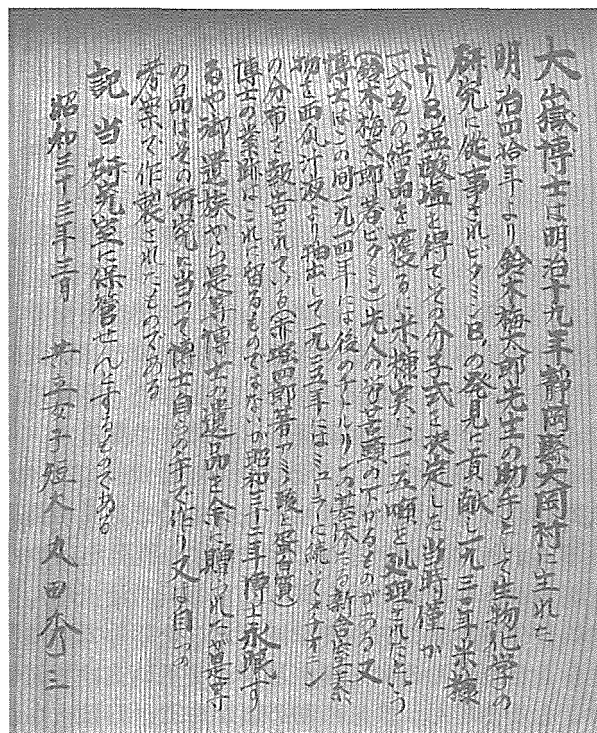 大嶽博士は明治十九年静岡縣大岡村に生れた
明治四拾年より鈴木梅太郎先生の助手として生物化学の
研究に従事されビタミンB₁の発見に貢献し一九三〇年米糠
よりB₁塩酸塩を得てその分子式を決定した当時僅か
一、六瓦の結晶を獲るに米糠実に一、五噸を処理されたという
(鈴木梅太郎著ビタミン)先人の労苦頭の下がるものがある又
博士はこの間一九一四年には後のチトルリンの基体たる新含窒素
物を西瓜汁液より抽出して一九二五年にはミュラに続いてメチオニン
の分布を報告されている(赤堀四郎著アミノ酸と蛋白質)
博士の業跡はこれに留るものでないが昭和三十二年博士永眠す
るや御遺族から是等博士の遺品を余に贈られたが是等
の品はその研究に当って博士自らの手で作り又は自らの
考案で作製されたものである
記 当研究室に保管せんとするものである
昭和三十三年三月 共立女子短大 丸田秀三